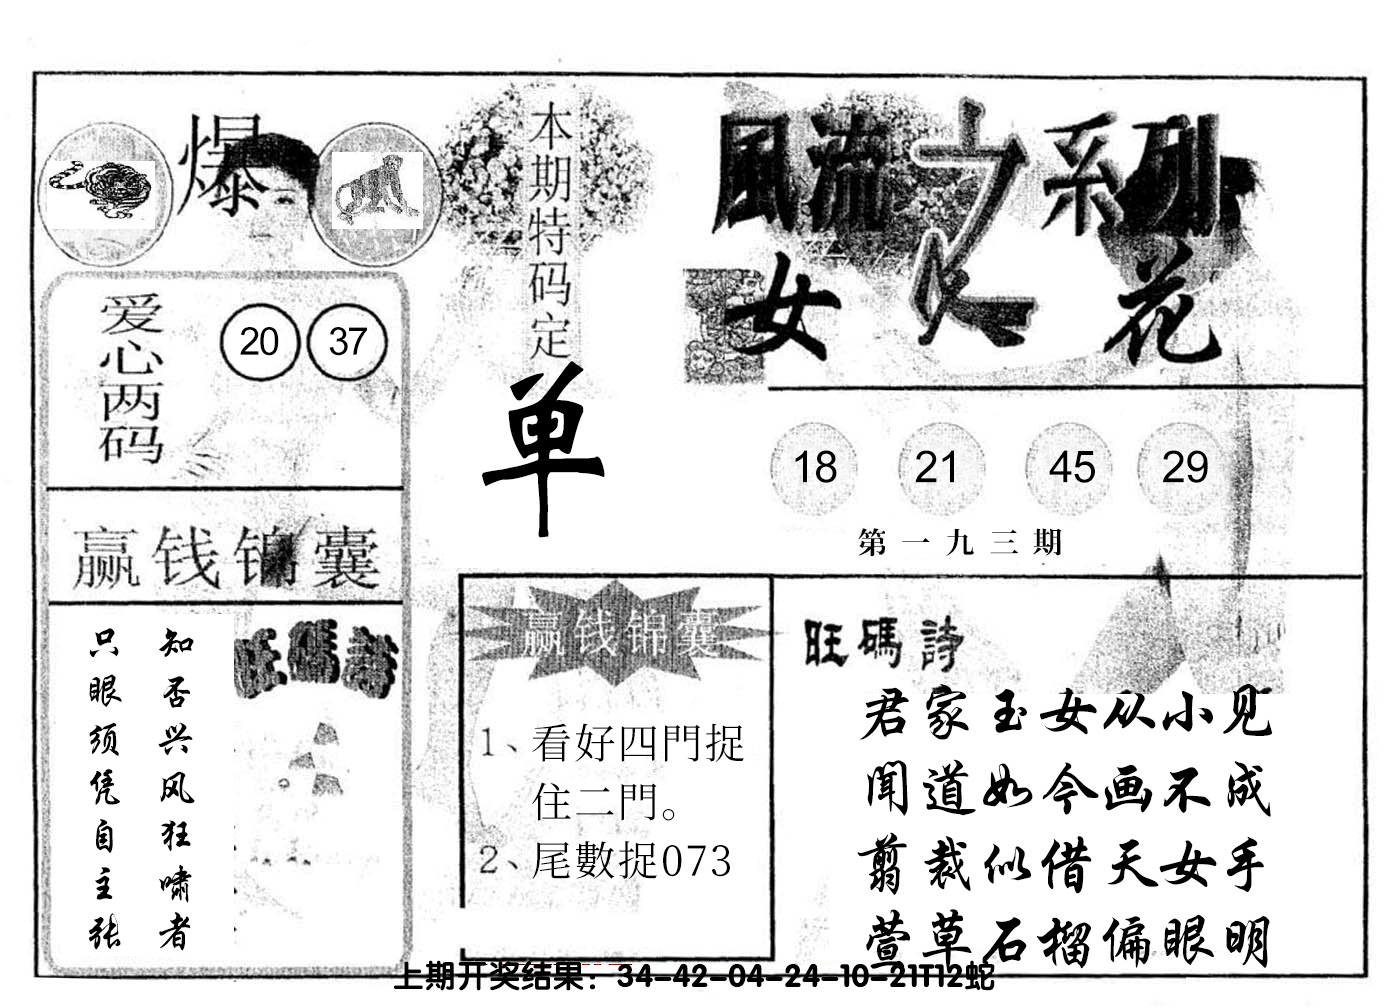 爆
爱心两码
20 37
赢钱锦囊
知否兴风狂啸者
只眼须凭自主张
旺碼詩
本期特码定
单
風流之系列
女人花
18 21 45 29
第一九三期
赢钱锦囊
1、看好四門捉
住二門。
2、尾數捉073
旺碼詩
君家玉女从小见
闻道如今画不成
剪裁似借天女手
萱草石榴偏眼明
上期开奖结果：34-42-04-24-10-21T12蛇